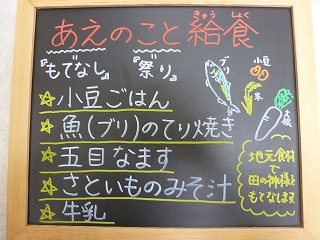 あえのこと給食
きゅう しょく
『もてなし』『祭り』
ブリ
小豆
米
大根
☆小豆ごはん
☆魚(ブリ)のてり焼き
☆五目なます
☆さといものみそ汁
☆牛乳
地元食材
で
田の神様を
もてなします